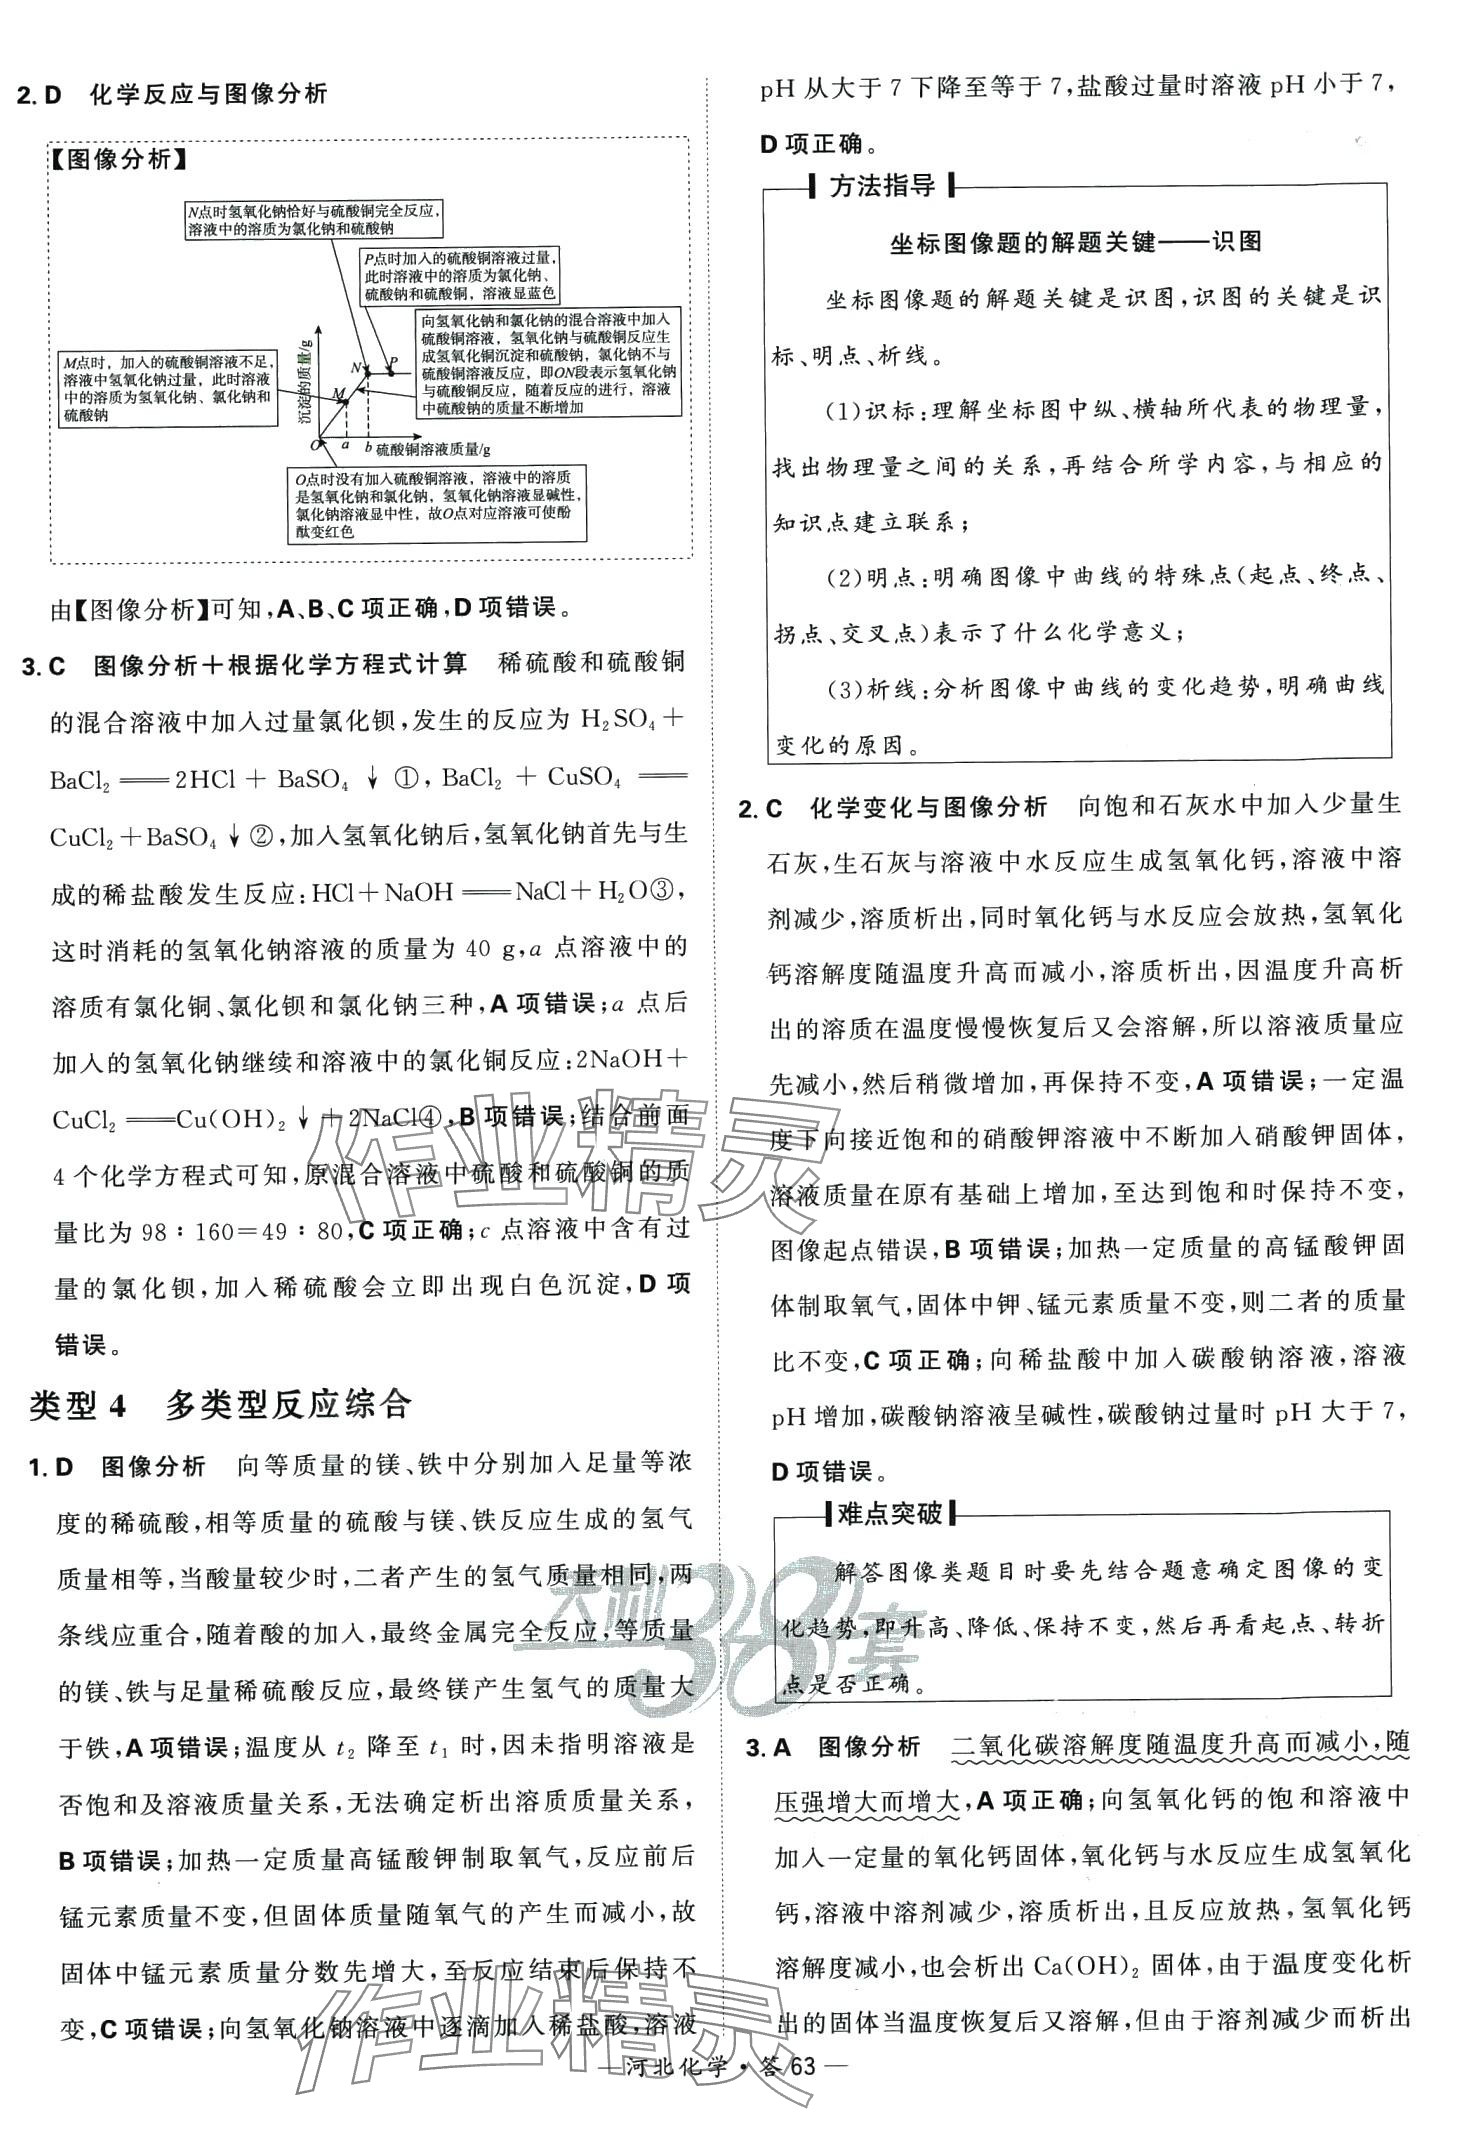 2. D 化学反应与图像分析
【图像分析】
N点时氢氧化钠恰好与硫酸铜完全反应,
溶液中的溶质为氯化钠和硫酸钠
P点时加入的硫酸铜溶液过量,
此时溶液中的溶质为氯化钠、
硫酸钠和硫酸铜，溶液显蓝色
向氢氧化钠和氯化钠的混合溶液中加入
硫酸铜溶液，氢氧化钠与硫酸铜反应生
成氢氧化铜沉淀和硫酸钠，氯化钠不与
硫酸铜溶液反应，即ON段表示氢氧化钠
与硫酸铜反应，随着反应的进行，溶液
中硫酸钠的质量不断增加
M点时，加入的硫酸铜溶液不足,
溶液中氢氧化钠过量，此时溶液
中的溶质为氢氧化钠、氯化钠和
硫酸钠
沉淀的质量/g
N
P
M
O
a
b
硫酸铜溶液质量/g
O点时没有加入硫酸铜溶液，溶液中的溶质
是氢氧化钠和氯化钠，氢氧化钠溶液显碱性,
氯化钠溶液显中性，故O点对应溶液可使酚
酞变红色
由【图像分析】可知,A、B、C项正确,D项错误。
3. C 图像分析＋根据化学方程式计算 稀硫酸和硫酸铜
的混合溶液中加入过量氯化钡,发生的反应为 H₂SO₄＋
BaCl₂ ══ 2HCl ＋ BaSO₄ ↓ ①, BaCl₂ ＋ CuSO₄ ══
CuCl₂＋BaSO₄↓②,加入氢氧化钠后,氢氧化钠首先与生
成的稀盐酸发生反应:HCl＋NaOH══NaCl＋H₂O③,
这时消耗的氢氧化钠溶液的质量为 40 g,a 点溶液中的
溶质有氯化铜、氯化钡和氯化钠三种,A项错误;a 点后
加入的氢氧化钠继续和溶液中的氯化铜反应:2NaOH＋
CuCl₂══Cu(OH)₂↓＋2NaCl④,B项错误;结合前面
4 个化学方程式可知,原混合溶液中硫酸和硫酸铜的质
量比为 98∶160=49∶80,C项正确;c 点溶液中含有过
量的氯化钡,加入稀硫酸会立即出现白色沉淀,D 项
错误。
类型 4 多类型反应综合
1. D 图像分析 向等质量的镁、铁中分别加入足量等浓
度的稀硫酸,相等质量的硫酸与镁、铁反应生成的氢气
质量相等,当酸量较少时,二者产生的氢气质量相同,两
条线应重合,随着酸的加入,最终金属完全反应,等质量
的镁、铁与足量稀硫酸反应,最终镁产生氢气的质量大
于铁,A项错误;温度从 t₂ 降至 t₁ 时,因未指明溶液是
否饱和及溶液质量关系,无法确定析出溶质质量关系,
B项错误;加热一定质量高锰酸钾制取氧气,反应前后
锰元素质量不变,但固体质量随氧气的产生而减小,故
固体中锰元素质量分数先增大,至反应结束后保持不
变,C项错误;向氢氧化钠溶液中逐滴加入稀盐酸,溶液
pH 从大于 7 下降至等于 7,盐酸过量时溶液 pH 小于 7,
D项正确。
方法指导
坐标图像题的解题关键——识图
坐标图像题的解题关键是识图,识图的关键是识
标、明点、析线。
(1)识标:理解坐标图中纵、横轴所代表的物理量,
找出物理量之间的关系,再结合所学内容,与相应的
知识点建立联系;
(2)明点:明确图像中曲线的特殊点(起点、终点、
拐点、交叉点)表示了什么化学意义;
(3)析线:分析图像中曲线的变化趋势,明确曲线
变化的原因。
2. C 化学变化与图像分析 向饱和石灰水中加入少量生
石灰,生石灰与溶液中水反应生成氢氧化钙,溶液中溶
剂减少,溶质析出,同时氧化钙与水反应会放热,氢氧化
钙溶解度随温度升高而减小,溶质析出,因温度升高析
出的溶质在温度慢慢恢复后又会溶解,所以溶液质量应
先减小,然后稍微增加,再保持不变,A项错误;一定温
度下向接近饱和的硝酸钾溶液中不断加入硝酸钾固体,
溶液质量在原有基础上增加,至达到饱和时保持不变,
图像起点错误,B项错误;加热一定质量的高锰酸钾固
体制取氧气,固体中钾、锰元素质量不变,则二者的质量
比不变,C项正确;向稀盐酸中加入碳酸钠溶液,溶液
pH 增加,碳酸钠溶液呈碱性,碳酸钠过量时 pH 大于 7,
D项错误。
难点突破
解答图像类题目时要先结合题意确定图像的变
化趋势,即升高、降低、保持不变,然后再看起点、转折
点是否正确。
3. A 图像分析 二氧化碳溶解度随温度升高而减小,随
压强增大而增大,A项正确;向氢氧化钙的饱和溶液中
加入一定量的氧化钙固体,氧化钙与水反应生成氢氧化
钙,溶液中溶剂减少,溶质析出,且反应放热,氢氧化钙
溶解度减小,也会析出 Ca(OH)₂ 固体,由于温度变化析
出的固体当温度恢复后又溶解,但由于溶剂减少而析出
—河北化学·答 63 —
作业精灵
天利38套
作业精灵